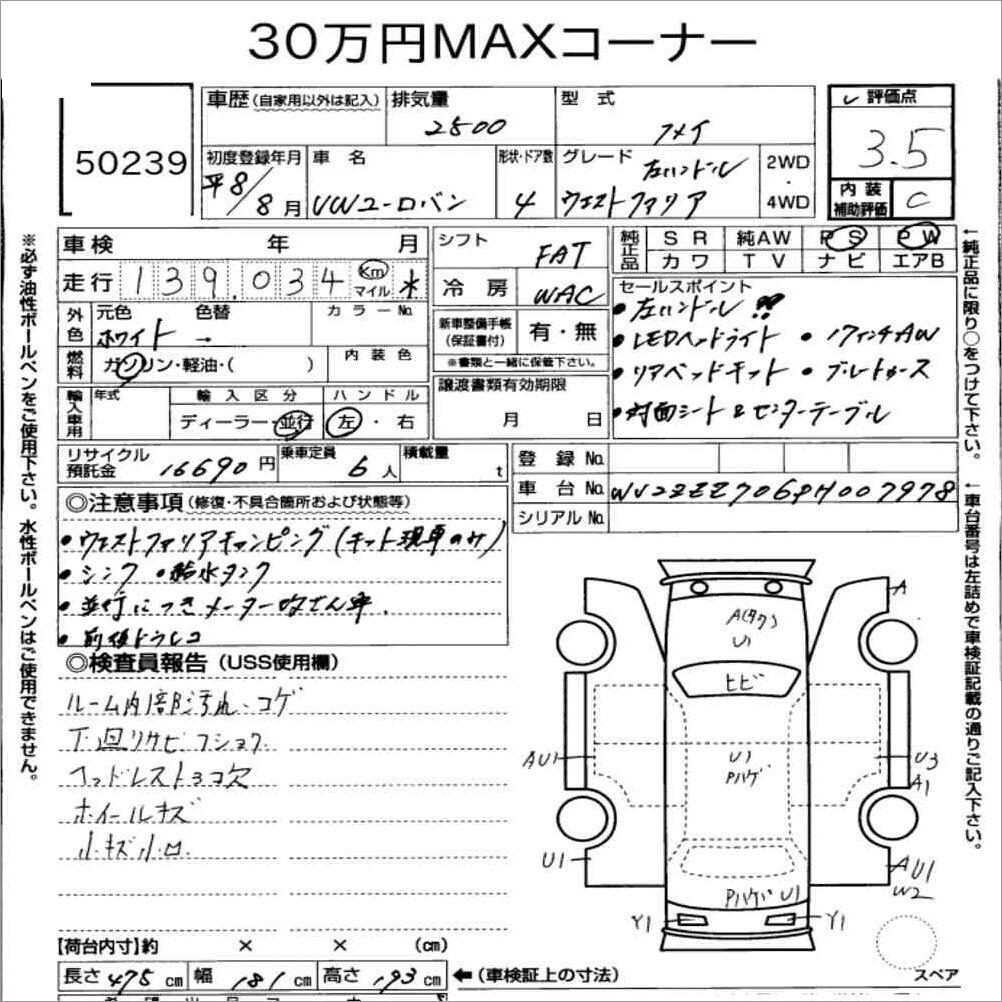 30万円MAXコーナー
50239
車歴 (自家用以外は記入)
排気量
2500
型 式
フメイ
評価点
3.5
内装補助評価
C
初度登録年月
平8/8月
車 名
VWユーロバン
形状・ドア数
4
グレード
左ハンドル
ウエストファリア
2WD
・
4WD
車検 年 月
走行 139,034 Km マイル *
外色
元色 色替 カラーNo.
ホワイト →
燃料
ガソリン・軽油・( )
内 装 色
輸入車用
年式
輸 入 区 分
ディーラー・並行
ハ ン ド ル
左・右
シフト
FAT
冷 房
WAC
新車整備手帳
(保証書付)
有・無
※書類と一緒に保管下さい。
譲渡書類有効期限
月 日
純正品
S R 純AW P S P W
カ ワ T V ナ ビ エアB
セールスポイント
・左ハンドル!!!
・LEDヘッドライト ・17インチAW
・リアベッドキット ・ブレートカース
・対面シート&センターテーブル
リサイクル預託金 16690 円
乗車定員 6 人
積載量 t
登 録 No.
車 台 No. WV2ZZZ706PH007978
シリアル No.
◎注意事項 (修復・不具合箇所および状態等)
・ウエストファリアキャンピング(キット現車のみ)
・シンク ・給水タンク
・並行につきメーター改ざん車.
・前後ドラレコ
◎検査員報告 (USS使用欄)
ルーム内部汚れ・コゲ
下廻りサビフショク
ヘッドレスト3コ欠
ホイールキズ
小キズ小凹
A
A(タク)
U1
ヒビ
AU1
U1
Pハゲ
U3
A1
U1
AU1
W2
Pハゲ U1
Y1
Y1
スペア
【荷台内寸】約 × × (cm)
長さ 475 cm 幅 181 cm 高さ 193 cm
←(車検証上の寸法)
※必ず油性ボールペンをご使用下さい。水性ボールペンはご使用できません。
←純正品に限り○をつけて下さい。
←車台番号は左詰めで車検証記載の通りご記入下さい。